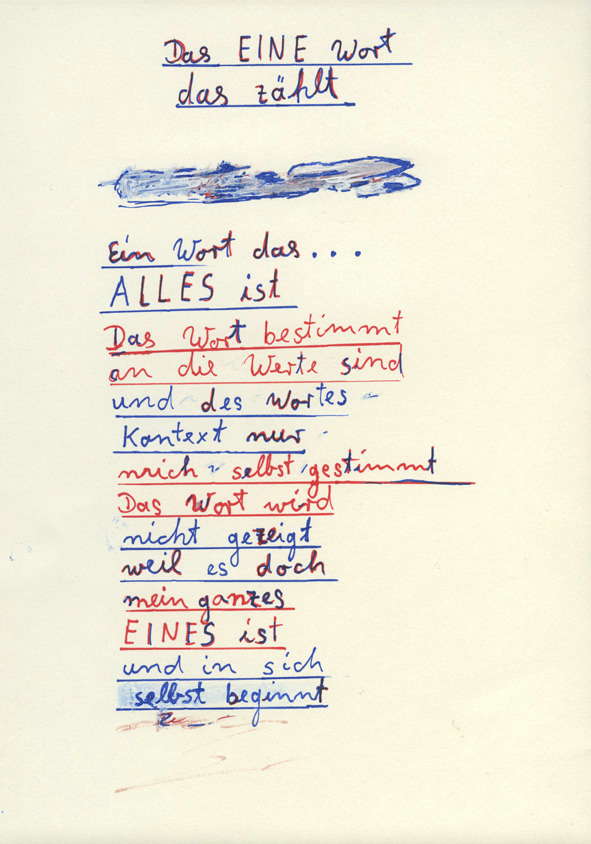 Das EINE Wort
das zählt
Ein Wort das...
ALLES ist
Das Wort bestimmt
an die Werte sind
und des Wortes
Kontext nur
mich selbst gestimmt
Das Wort wird
nicht gezeigt
weil es doch
mein ganzes
EINES ist
und in sich
selbst beginnt